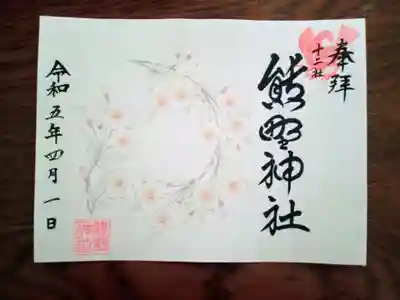 奉拝
十二社
熊野神社
令和五年四月一日